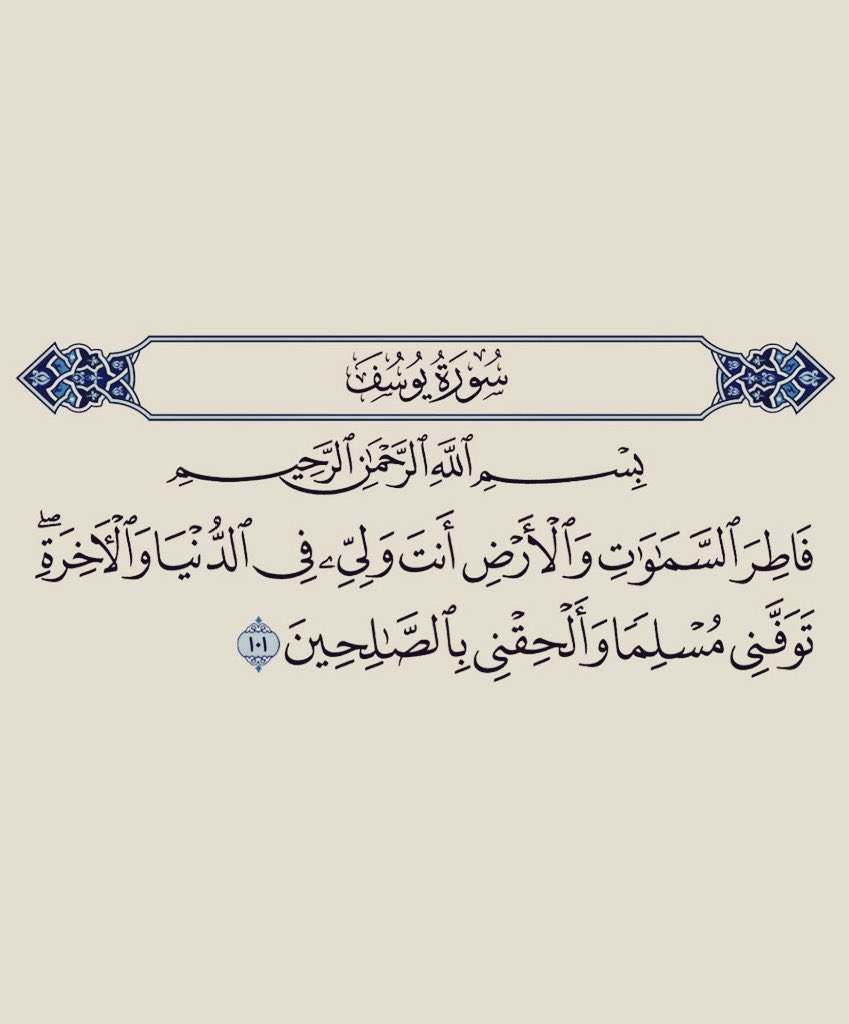 سُورَةُ يُوسُفَ
بِسۡمِ ٱللَّهِ ٱلرَّحۡمَٰنِ ٱلرَّحِيمِ
فَاطِرَ ٱلسَّمَٰوَٰتِ وَٱلۡأَرۡضِ أَنتَ وَلِيِّۦ فِي ٱلدُّنۡيَا وَٱلۡأٓخِرَةِۖ
تَوَفَّنِي مُسۡلِمٗا وَأَلۡحِقۡنِي بِٱلصَّٰلِحِينَ ١٠١